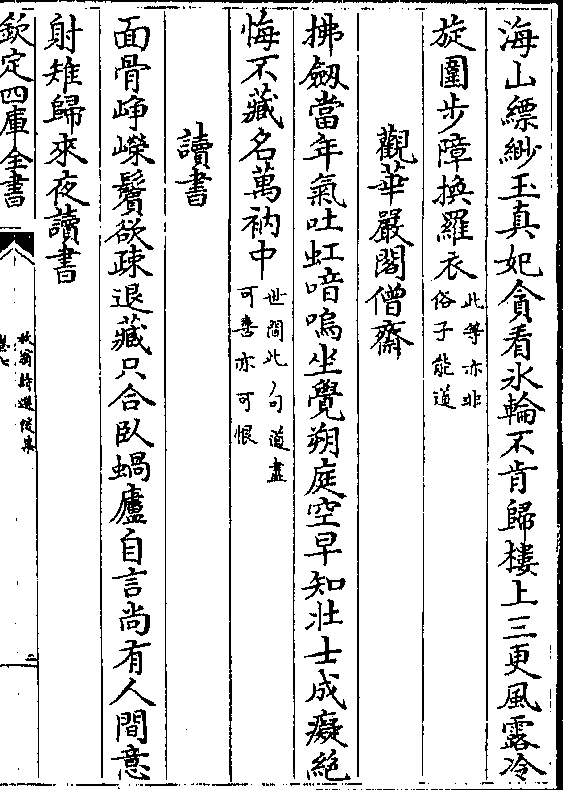 海山縹緲玉真妃貪看氷輪不肯歸樓上三更風露冷
旋圍步障換羅衣
此等亦非
俗子能道
觀華嚴閣僧齋
拂劒當年氣吐虹喑嗚坐覺朔庭空早知壯士成癡絶
悔不藏名萬衲中
世間此句道盡
可喜亦可恨
讀書
面骨崢嶸鬢欲疎退藏只合臥蝸廬自言尚有人間意
射雉歸來夜讀書
欽定四庫全書
放翁詩選後集
二